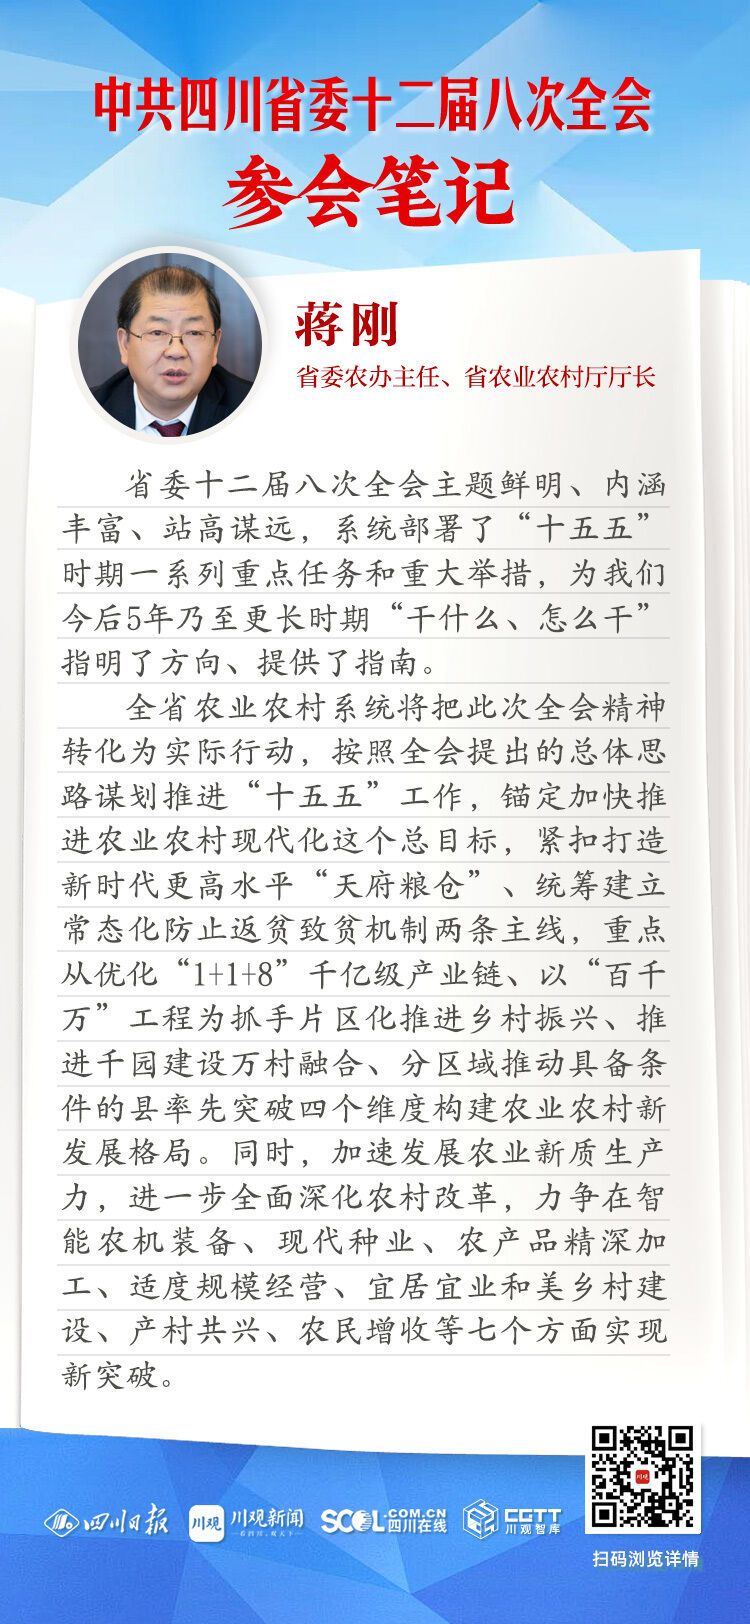 中共四川省委十二届八次全会
参会笔记
蒋刚
省委农办主任、省农业农村厅厅长
省委十二届八次全会主题鲜明、内涵
丰富、站高谋远，系统部署了“十五五”
时期一系列重点任务和重大举措，为我们
今后5年乃至更长时期“干什么、怎么干”
指明了方向、提供了指南。
全省农业农村系统将把此次全会精神
转化为实际行动，按照全会提出的总体思
路谋划推进“十五五”工作，锚定加快推
进农业农村现代化这个总目标，紧扣打造
新时代更高水平“天府粮仓”、统筹建立
常态化防止返贫致贫机制两条主线，重点
从优化“1+1+8”千亿级产业链、以“百千
万”工程为抓手片区化推进乡村振兴、推
进千园建设万村融合、分区域推动具备条
件的县率先突破四个维度构建农业农村新
发展格局。同时，加速发展农业新质生产
力，进一步全面深化农村改革，力争在智
能农机装备、现代种业、农产品精深加
工、适度规模经营、宜居宜业和美乡村建
设、产村共兴、农民增收等七个方面实现
新突破。
四川日报
川观
川观新闻
一看四川，观天下一
SCOL.COM.CN
四川在线
CGTT
川观智库
川观
扫码浏览详情